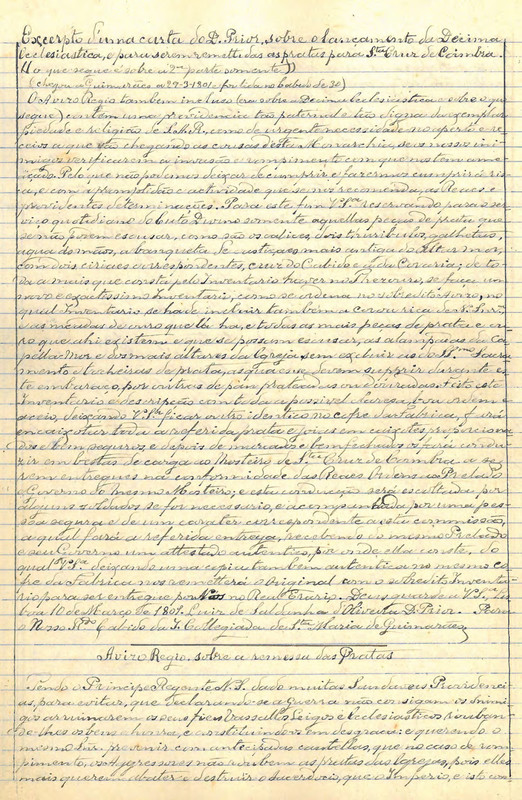 Excerpto d'uma carta do D. Prior, sobre o lançamento da Decima
Ecclesiastica, e para serem remettidas as pratas para Sta Cruz de Coimbra.
(o que segue é sobre a 2ª parte somente)
(chegou a Guimarães a 27-3-1801 e foi lida no cabido de 30)
O Aviso Regio tambem incluso (era sobre a Decima ecclesiastica e sobre o que
segue) contém uma providencia tão paternal e tão digna da exemplar
piedade e religião de S.A.R., como de urgente necessidade no aperto e re-
ceios a que vão chegando as cousas desta Monarchia, se os nossos ini-
migos verificarem a invasão e rompimento com que nos tem ame-
açado. Pelo que não podemos deixar de cumprir e fazermos cumprir á ris-
ca, e com a promptidão e actividade que se nos recomenda, as Reaes e
providentes determinações. Para este fim V. Sria reservando para o ser-
viço quotidiano do culto Divino somente aquellas peças de prata que
se não podem escusar, como são os calices, dois thuribulos, galhetas,
agua ás mãos, a banqueta de castiçaes mais antiga do Altar mor,
com dois ciriaes correspondentes, cruz do Cabido e da Coraria; de to-
da a mais que consta pelo Inventario haver no Thezouro, se faça um
novo e exactissimo Inventario, como se ordena no sobredito Aviso, no
qual Inventario se ha de incluir tambem a corôa rica de N. Snra,
das moedas de ouro que ella ha, e todas as mais peças de prata e ou-
ro que ahi existem e que se possam escusar, as alampadas da Ca-
pella Mor e dos mais altares da Igreja sem excluir as do SS.mo Sacra-
mento e tocheiras de prata, as quaes se devem supprir durante es-
te embaraço, por outras de páu prateadas ou douradas. Feito este
Inventario e descripção com toda a possivel clareza, boa ordem e
aceio, deixando V. Sria ficar outro identico no cofre da fabrica, fará
encaixotar toda a referida prata e joias em caixotes proporciona-
dos e bem seguros, e depois de marcados e bem fechados os fará condu-
zir em bestas de carga ao Mosteiro de Sta Cruz de Coimbra a se-
rem entregues na conformidade das Reaes Ordens ao Prelado
e Governo do mesmo Mosteiro; e esta conducção será escoltada por
alguns soldados se for necessario, e acompanhada por uma pes-
sôa segura e de um carater correspondente a esta commissão,
a qual fará a referida entrega, recebendo do mesmo Prelado
e seu Governo um attestado autentico, por onde ella conste, do
qual V. Sria deixando uma copia tambem autentica no mesmo co-
fre da Fabrica nos remetterá o Original com o sobredito Inventa-
rio para ser entregue por Nós no Real Erario. Deus guarde a V. S. Lis-
boa 10 de Março de 1801. Luiz de Saldanha d'Oliveira D. Prior. Para
o Nosso Rdo Cabido da I. Collegiada de Sta Maria de Guimarães
Aviso Regio, sobre a remessa das Pratas
Tendo o Principe Regente N. S. dado muitas saudaveis Providenci-
as, para evitar, que declarando-se a Guerra não consigam os Inimi-
gos arruinarem os seus fieis Vassallos Leigos e Ecclesiasticos, rouban-
do-lhes os bens e honra, e constituindo-os em desgraça: e querendo o
mesmo Snr. prevenir com antecipadas cautellas, que no caso de rom-
pimento, os Aggressores não roubem as pratas das Igrejas, pois elles
mais querem abater e destruir o Sacerdocio, que o Imperio, e isto co-